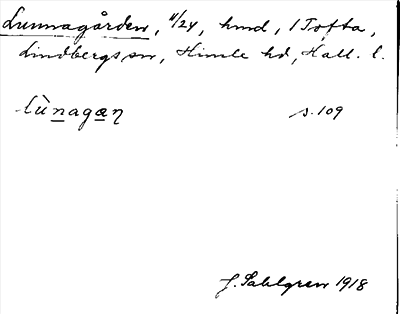 Lunnagården, 11/24, hmd, 1 Tofta,
Lindbergs sn, Himle hd, Hall. l.
lùnagan s. 109
J. Sahlgren 1918